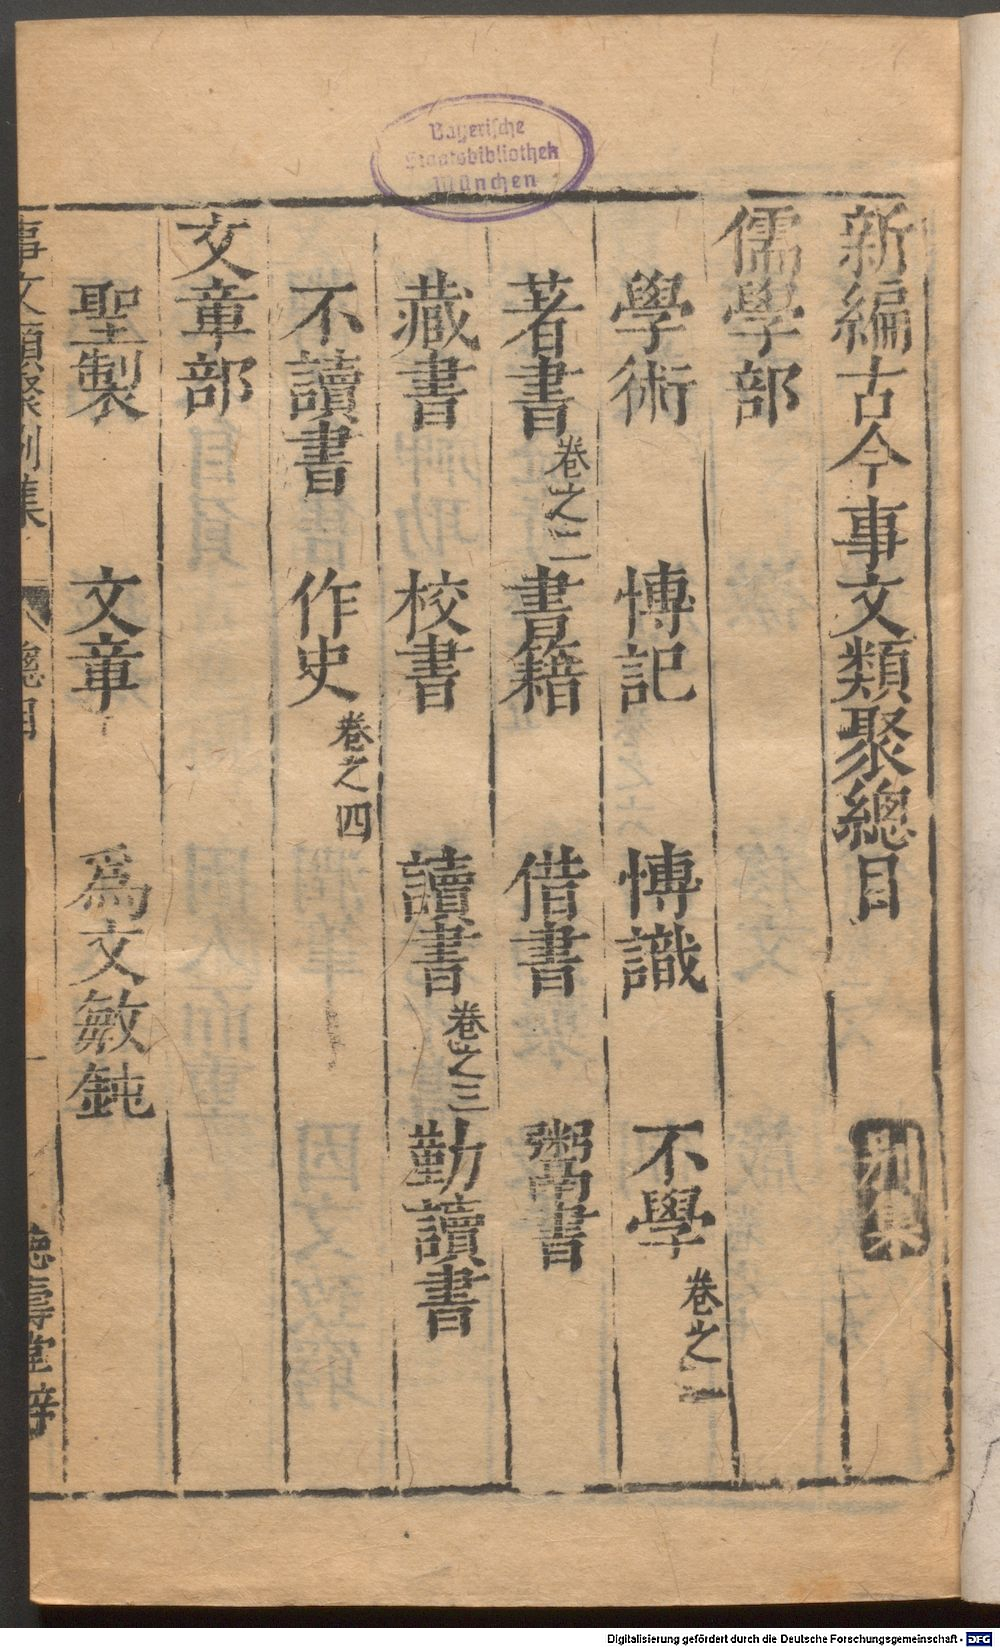 Bayerische
Staatsbibliothek
München
新編古今事文類聚總目 別集
儒學部
學術 愽記 愽識 不學 卷之一
著書 卷之二 書籍 借書 鬻書
藏書 校書 讀書 卷之三 勤讀書
不讀書 作史 卷之四
文章部
聖製 文章 爲文敏鈍
事文類聚別集 總目 一 德壽堂梓
Digitalisierung gefördert durch die Deutsche Forschungsgemeinschaft - DFG